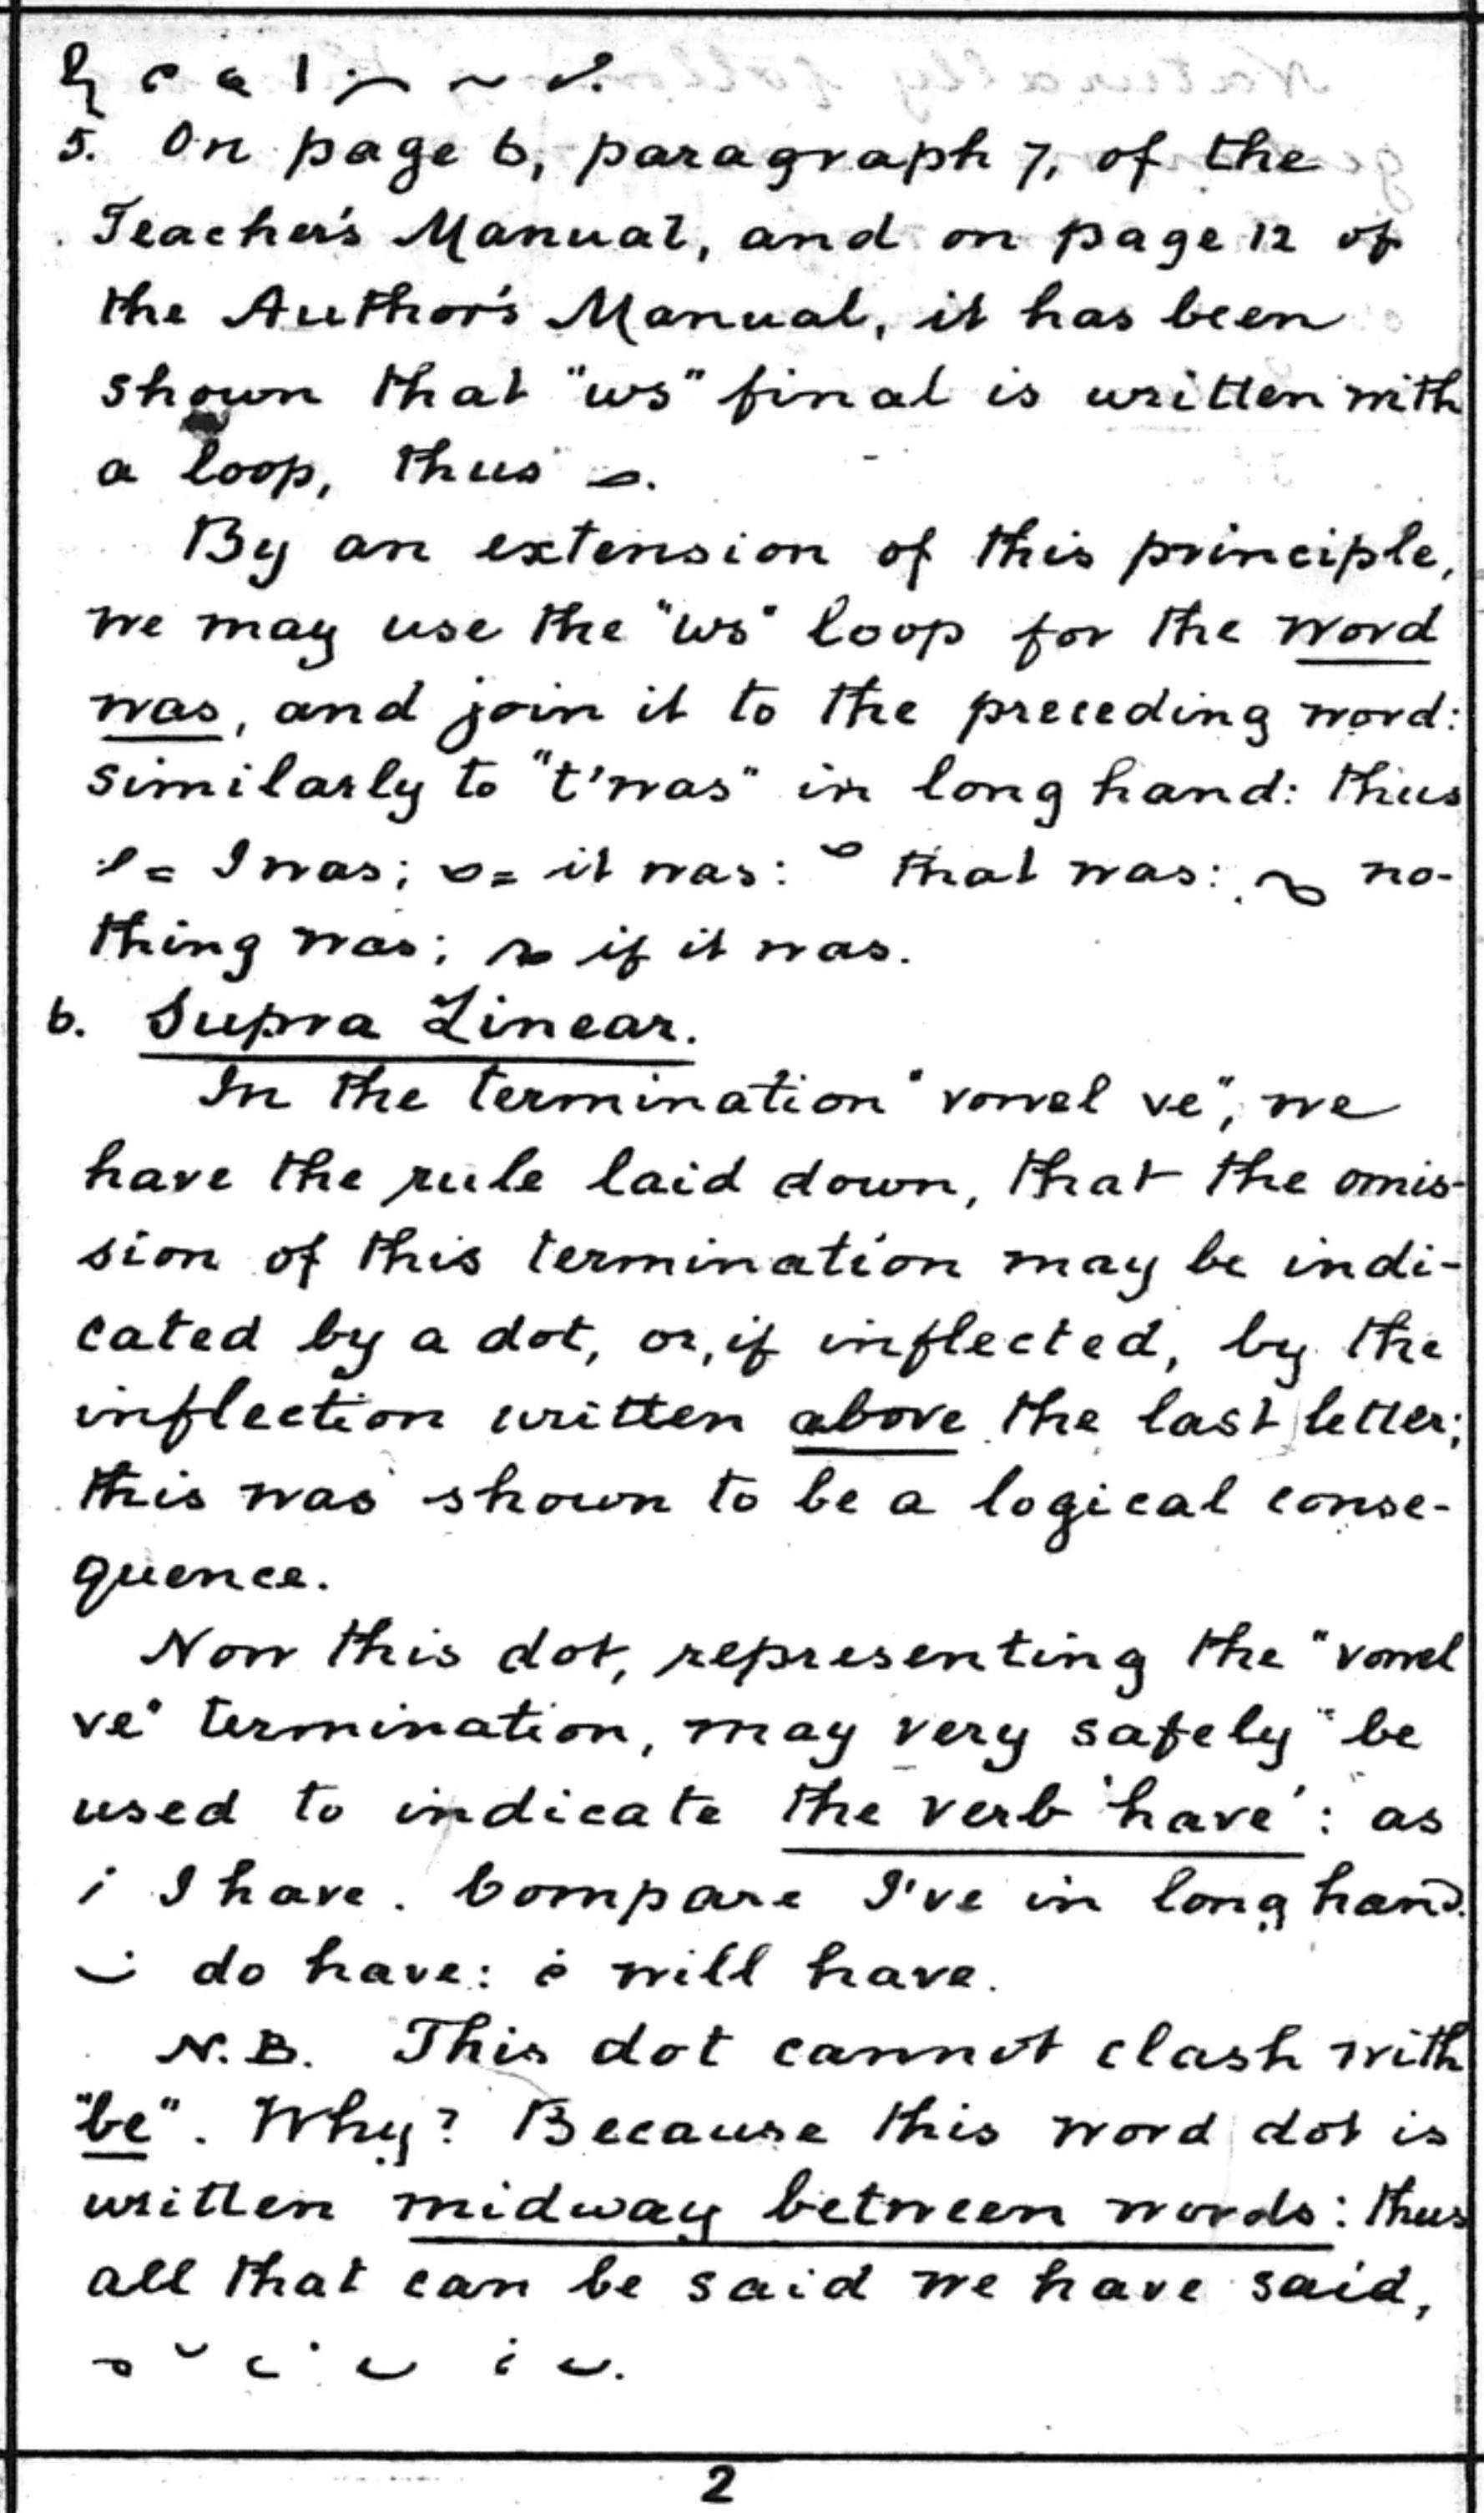 5. On page 6, paragraph 7, of the
Teacher's Manual, and on page 12 of
the Author's Manual, it has been
shown that "ws" final is written with
a loop, thus .
By an extension of this principle,
we may use the "ws" loop for the word
was, and join it to the preceding word:
similarly to "t'was" in long hand: thus
= I was; = it was: that was: no-
thing was; if it was.
6. Supra Linear.
In the termination "vowel ve", we
have the rule laid down, that the omis-
sion of this termination may be indi-
cated by a dot, or, if inflected, by the
inflection written above the last letter;
this was shown to be a logical conse-
quence.
Now this dot, representing the "vowel
ve" termination, may very safely be
used to indicate the verb 'have': as
I have. Compare I've in long hand.
do have: will have.
N.B. This dot cannot clash with
"be". Why? Because this word dot is
written midway between words: thus
all that can be said we have said,
2